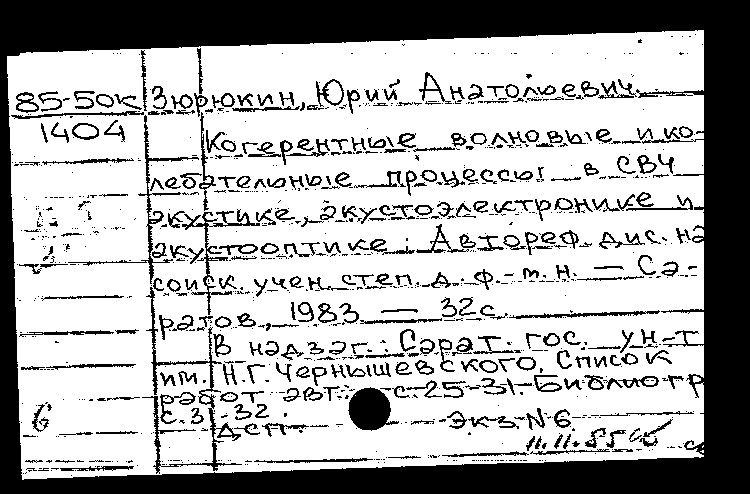 85-50к Зюрюкин, Юрий Анатольевич.
1404
Когерентные волновые и ко-
лебательные процессы в СВЧ
акустике, акустоэлектронике и
акустооптике: Автореф. дис. на
соиск. учен. степ. д. ф.-м. н. — Са-
ратов, 1983 — 32 с.
В надзаг.: Сарат. гос. ун-т
им. Н.Г. Чернышевского. Список
работ авт.: с. 25-31. Библиогр
с. 31-32.
6
ДСП. Экз. N 6
11.11.85